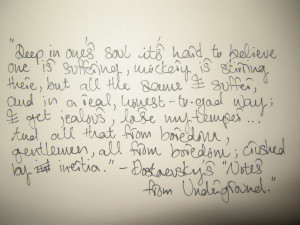 "Deep in one's soul it's hard to believe
one is suffering, mockery is stirring
there, but all the same I suffer,
and in a real, honest-to-god way;
I get jealous, lose my temper...
And all that from boredom,
gentlemen, all from boredom; crushed
by inertia." - Dostoevsky's "Notes
from Underground."